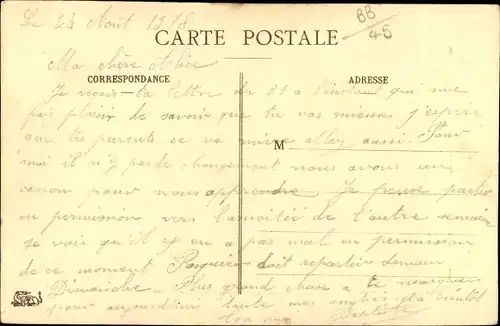 Le 24 Août 1918
BB
45
CARTE POSTALE
Ma chère Alice
CORRESPONDANCE
ADRESSE
Je reçois ta lettre du 21 a l'instant qui me
fais plaisir de savoir que tu vas mieux j'espère
que tes parents ce va aussi. Pour
M
moi il n'y pas de changement nous avons un
canon pour nous apprendre. Je pense partir
en permission vers la moitié de l'autre semaine
je vois qu'il y en a pas mal en permission
de ce moment doit repartir demain
Dimanche. Plus grand chose a te
pour aujourd'hui toute mes a bientôt
ton ami